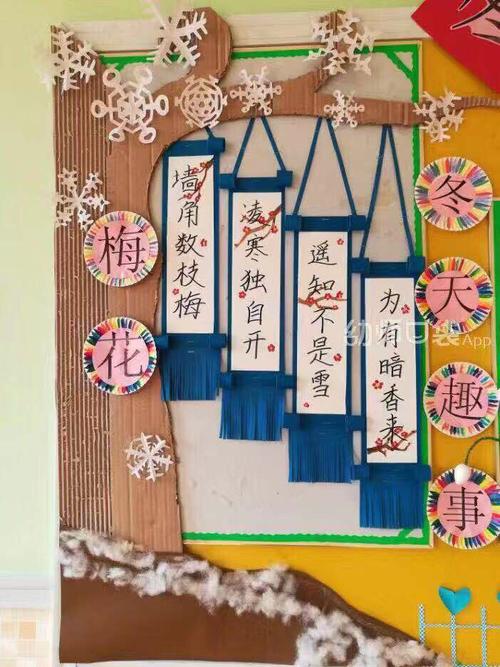 冬
梅花
墙角数枝梅
凌寒独自开
遥知不是雪
为有暗香来
冬天趣事
幼师口袋App